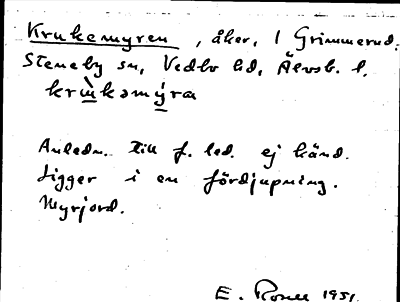 Krukemyren, åker, 1 Grimmerud,
Steneby sn, Vedbo hd, Älvsb. l.
krùkəmýra
Anledn. till f. led. ej känd.
Ligger i en fördjupning.
Myrjord.
E. 1951.